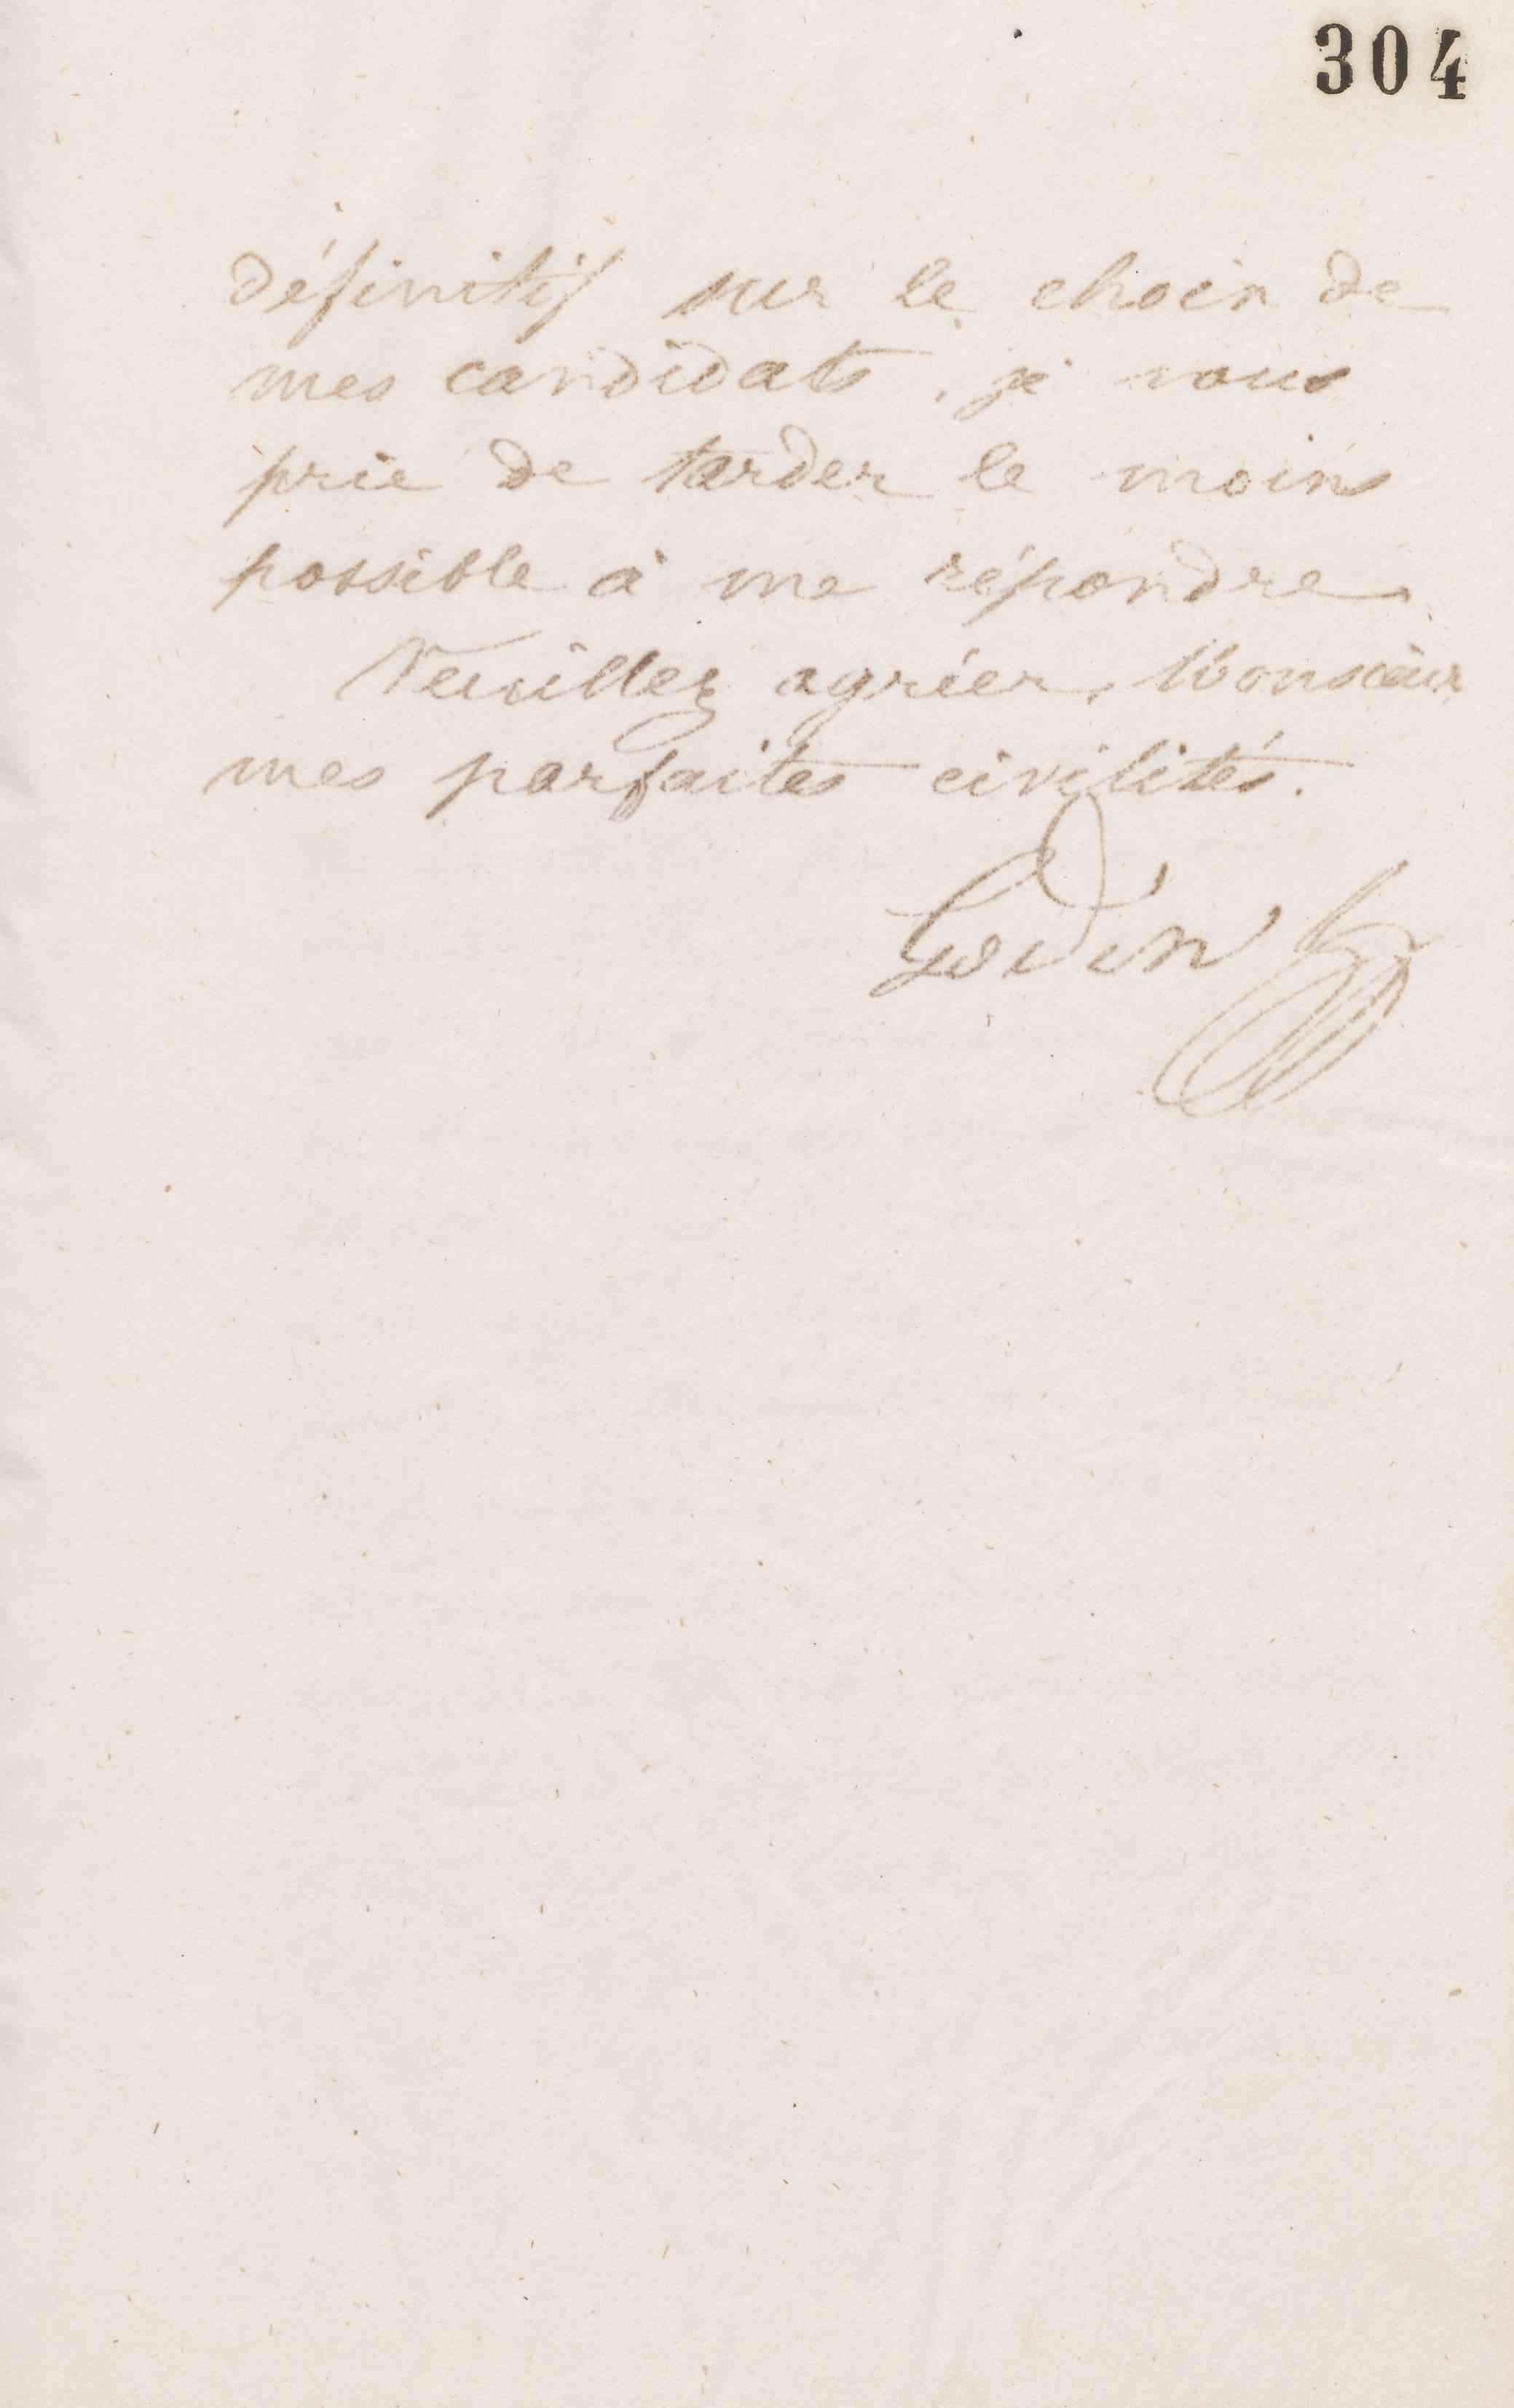 304
définitif sur le choix de
mes candidats, je vous
prie de tarder le moins
possible à me répondre
Veuillez agréer, Monsieur
mes parfaites civilités.
Godin